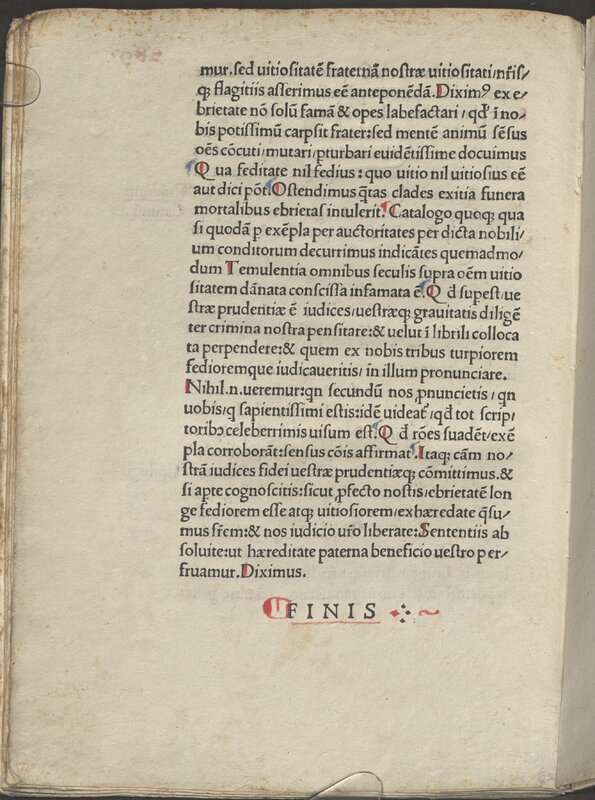 mur. sed uitiositatē fraternā nostræ uitiositati/nr̄is/
q; flagitiis asserimus eē anteponēdā. Diximꝰ ex e/
brietate nō solū famā & opes labefactari/qd' ī no/
bis potissimū carpsit frater: sed mentē animū sēsus
oēs cōcuti/mutari/ꝑturbari euidētissime docuimus
Qua feditate nil fedius: quo uitio nil uitiosius eē
aut dici pōt. Ostendimus q̄tas clades exitia funera
mortalibus ebrietas intulerit. Catalogo quoq; qua
si quodā p exēpla per auctoritates per dicta nobili/
um conditorum decurrimus indicātes quemadmo/
dum Temulentia omnibus seculis supra oēm uitio
sitatem dānata conscissa infamata ē. Qd supest/ue
stræ prudentiæ ē iudices/uestræq; grauitatis diligē
ter crimina nostra pensitare: & uelut ī librili colloca
ta perpendere: & quem ex nobis tribus turpiorem
fedioremque iudicaueritis/in illum pronunciare.
Nihil.n.ueremur: qn secundū nos ꝓnuncietis/qn
uobis/q sapientissimi estis: idē uideat᷑/qd tot scrip/
toribꝫ celeberrimis uisum est. Qd rōes suadēt/exē
pla corroborāt: sensus cōis affirmat. Itaq; cām no/
strā iudices fidei uestræ prudentiæq; cōmittimus. &
si apte cognoscitis: sicut ꝓfecto nostis/ebrietatē lon
ge fediorem esse atq; uitiosiorem/exhæredate q̄su/
mus fr̄em: & nos iudicio ur̄o liberate: Sententiis ab
soluite: ut hæreditate paterna beneficio uestro per/
fruamur. Diximus.
FINIS